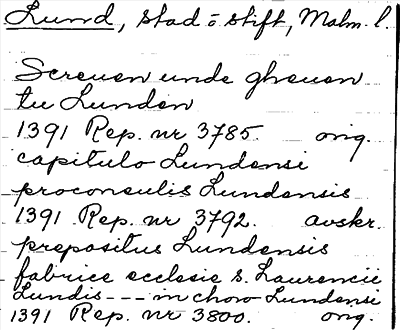 Lund, stad o. stift, Malm. l.
Screuen unde gheuen
tu Lunden
1391 Rep. nr 3785. orig.
capitulo Lundensi
proconsulis Lundensis
1391 Rep. nr 3792. avskr.
prepositus Lundensis
fabrice ecclesie s. Laurencii
Lundis --- in choro Lundensi
1391 Rep. nr 3800. orig.